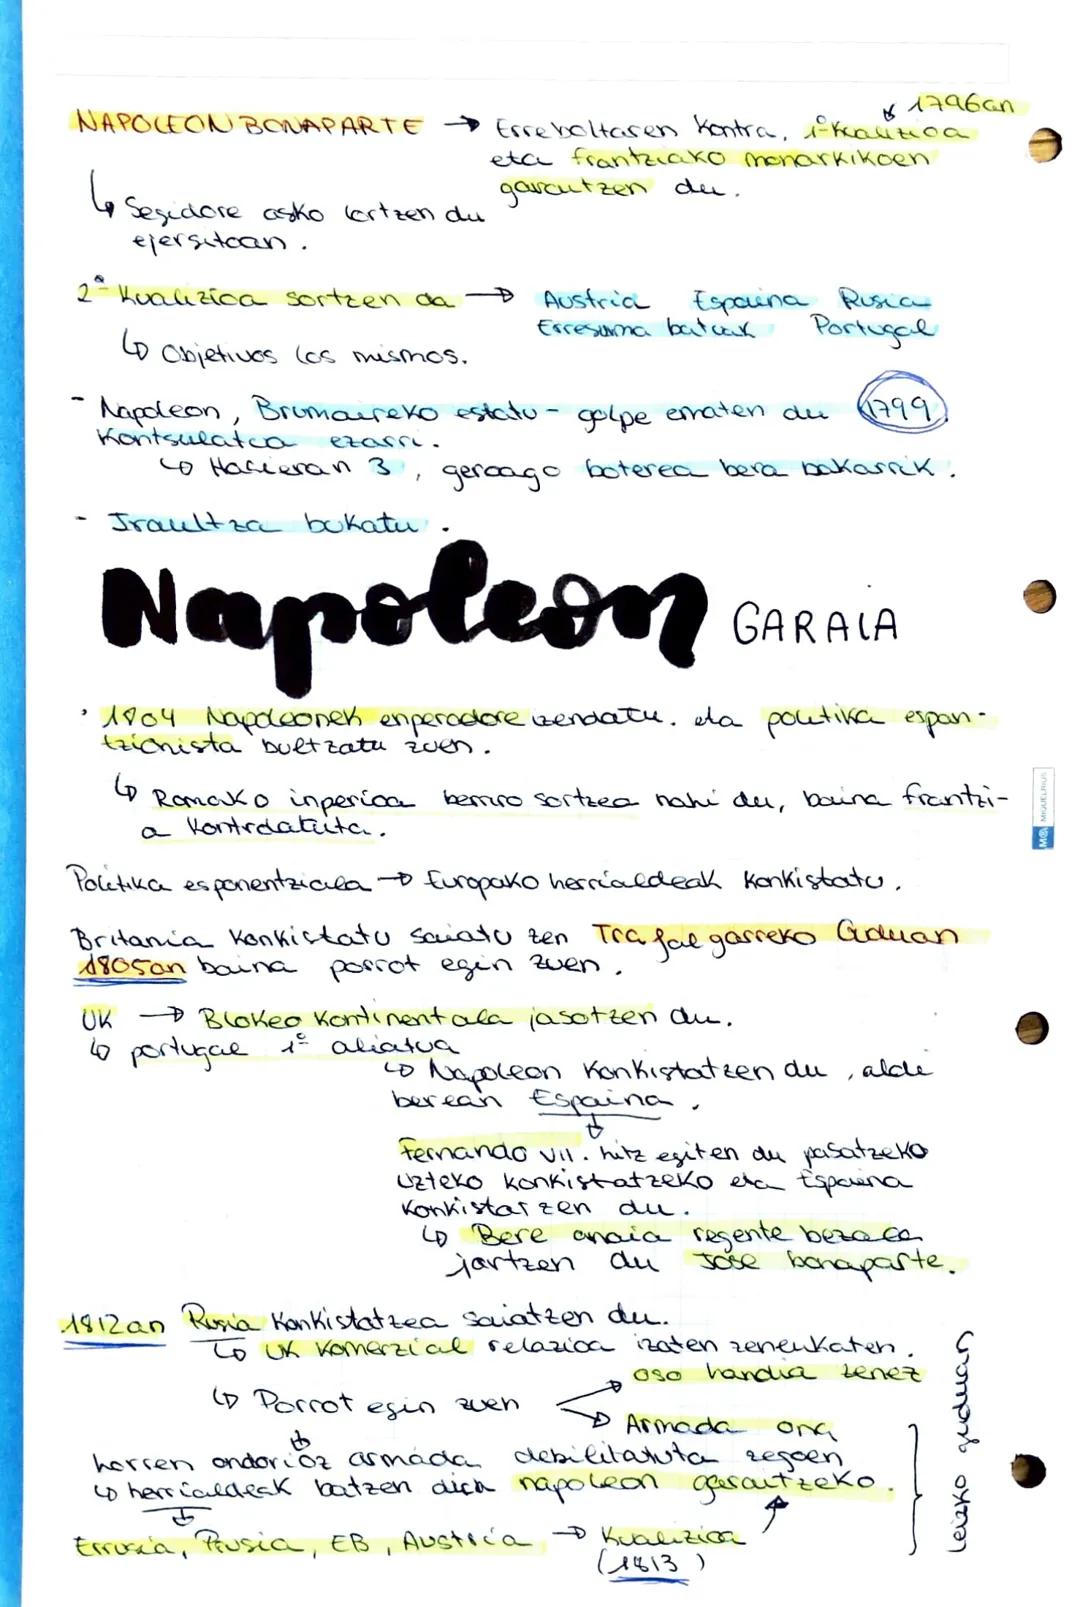 1796an
NAPOLEON BONAPARTE → Erreboltaren kontra, 1º koalizioa
eta frantziako monarkikoen
garaitzen du.
↳ Segidore asko lortzen du
ejersitoan.
2ª Kualizioa sortzen da → Austria Espaina Rusia
Erresuma batuak Portugal
↳ Objetivos los mismos.
- Napoleon, Brumaireko estatu-golpe ematen du 1799
Kontsulatua ezarri.
↳ Hasieran 3, geroago boterea bera bakarrik.
- Iraultza bukatu.
Napoleon GARAIA
· 1804 Napoleonek enperadore izendatu. eta politika espan-
tzionista bultzatu zuen.
↳ Romako inperioa berriro sortzea nahi du, baina frantzi-
a kontrolatuta.
Politika esponentziala → Europako herrialdeak konkistatu.
Britania konkistatu saiatu zen Trafalgarreko Guduan
1805an baina porrot egin zuen.
UK → Blokeo kontinentala jasotzen du.
↳ portugal 1º aliatua
↳ Napoleon konkistatzen du, aldi
berean Espaina.
Fernando VII. hitz egiten du pasatzeko
uzteko konkistatzeko eta Espaina
konkistatzen du.
↳ Bere anaia regente bezala
jartzen du Jose bonaparte.
1812an Rusia konkistatzea saiatzen du.
↳ UK komerzial relazioa izaten zeneukaten.
oso handia zenez
↳ Porrot egin zuen
Armada ona
horren ondorioz armada debilitatuta zegoen
↳ herrialdeak batzen dira napoleon garaitzeko.
Errusia, Prusia, EB, Austria → Kualizioa
(1813)
Leizko guduan
MIQUELRIUS